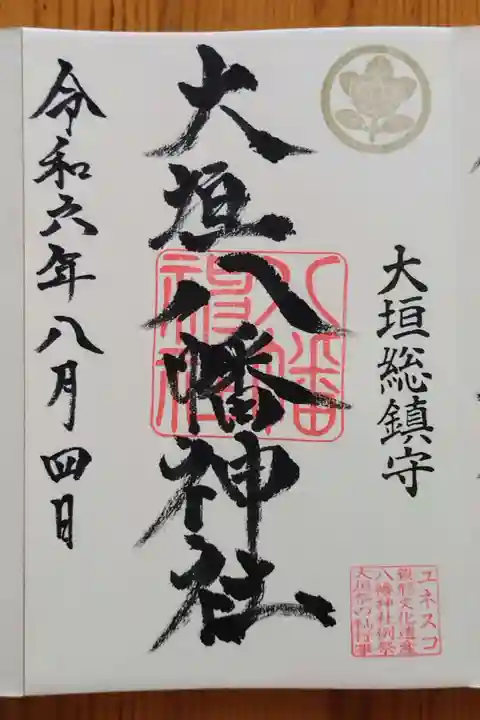 大垣総鎮守
ユネスコ
無形文化遺産
八幡神社例祭
大垣祭の𨏍行事
大垣八幡神社
八幡神社
令和六年八月四日